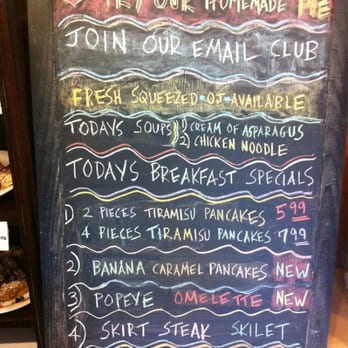 TRY OUR HOMEMADE PIE
JOIN OUR EMAIL CLUB
FRESH SQUEEZED OJ AVAILABLE
TODAYS SOUPS 1) CREAM OF ASPARAGUS
2) CHICKEN NOODLE
TODAYS BREAKFAST SPECIALS
1) 2 PIECES TIRAMISU PANCAKES 5.99
4 PIECES TIRAMISU PANCAKES 7.99
2) BANANA CARAMEL PANCAKES NEW
3) POPEYE OMELETTE NEW
4) SKIRT STEAK SKILET